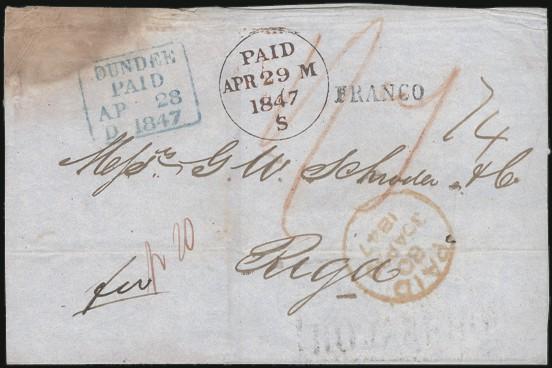 DUNDEE
PAID
AP 28
D 1847
PAID
APR 29 M
1847
S
FRANCO
Messrs G. W. Schroder & C
Riga
PAID
30 AP
1847